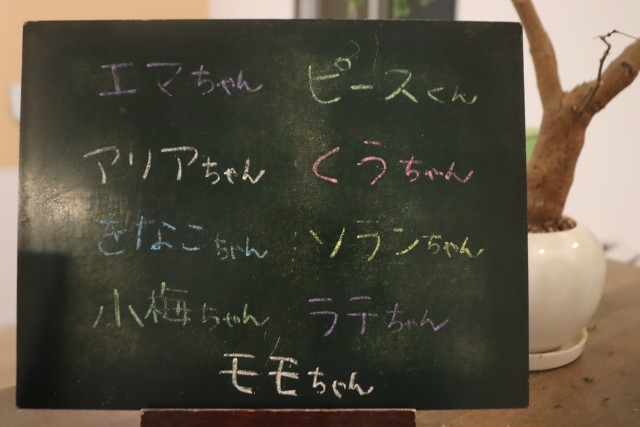 エマちゃん ピースくん
アリアちゃん くうちゃん
きなこちゃん ソランちゃん
小梅ちゃん ラテちゃん
モモちゃん